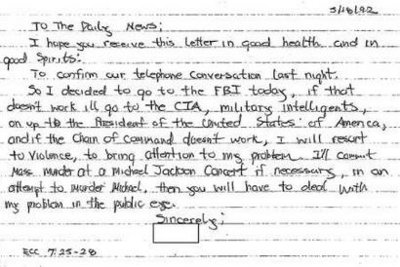 5/18/92
To The Daily News;
I hope you receive this letter in good health and in
good Spirits:
To confirm our telephone conversation last night.
So I decided to go to the FBI today, if that
doesn't work ill go to the CIA, military intelligents,
on up to the President of the United States of America,
and if the Chain of Command doesn't work, I will resort
to Violence, to bring attention to my problem. I'll commit
Mass Murder at a Michael Jackson Concert if necessary, in an
attempt to Murder Michael, then you will have to deal with
my problem in the public eye.
Sincerely;
RCC 7:25-28